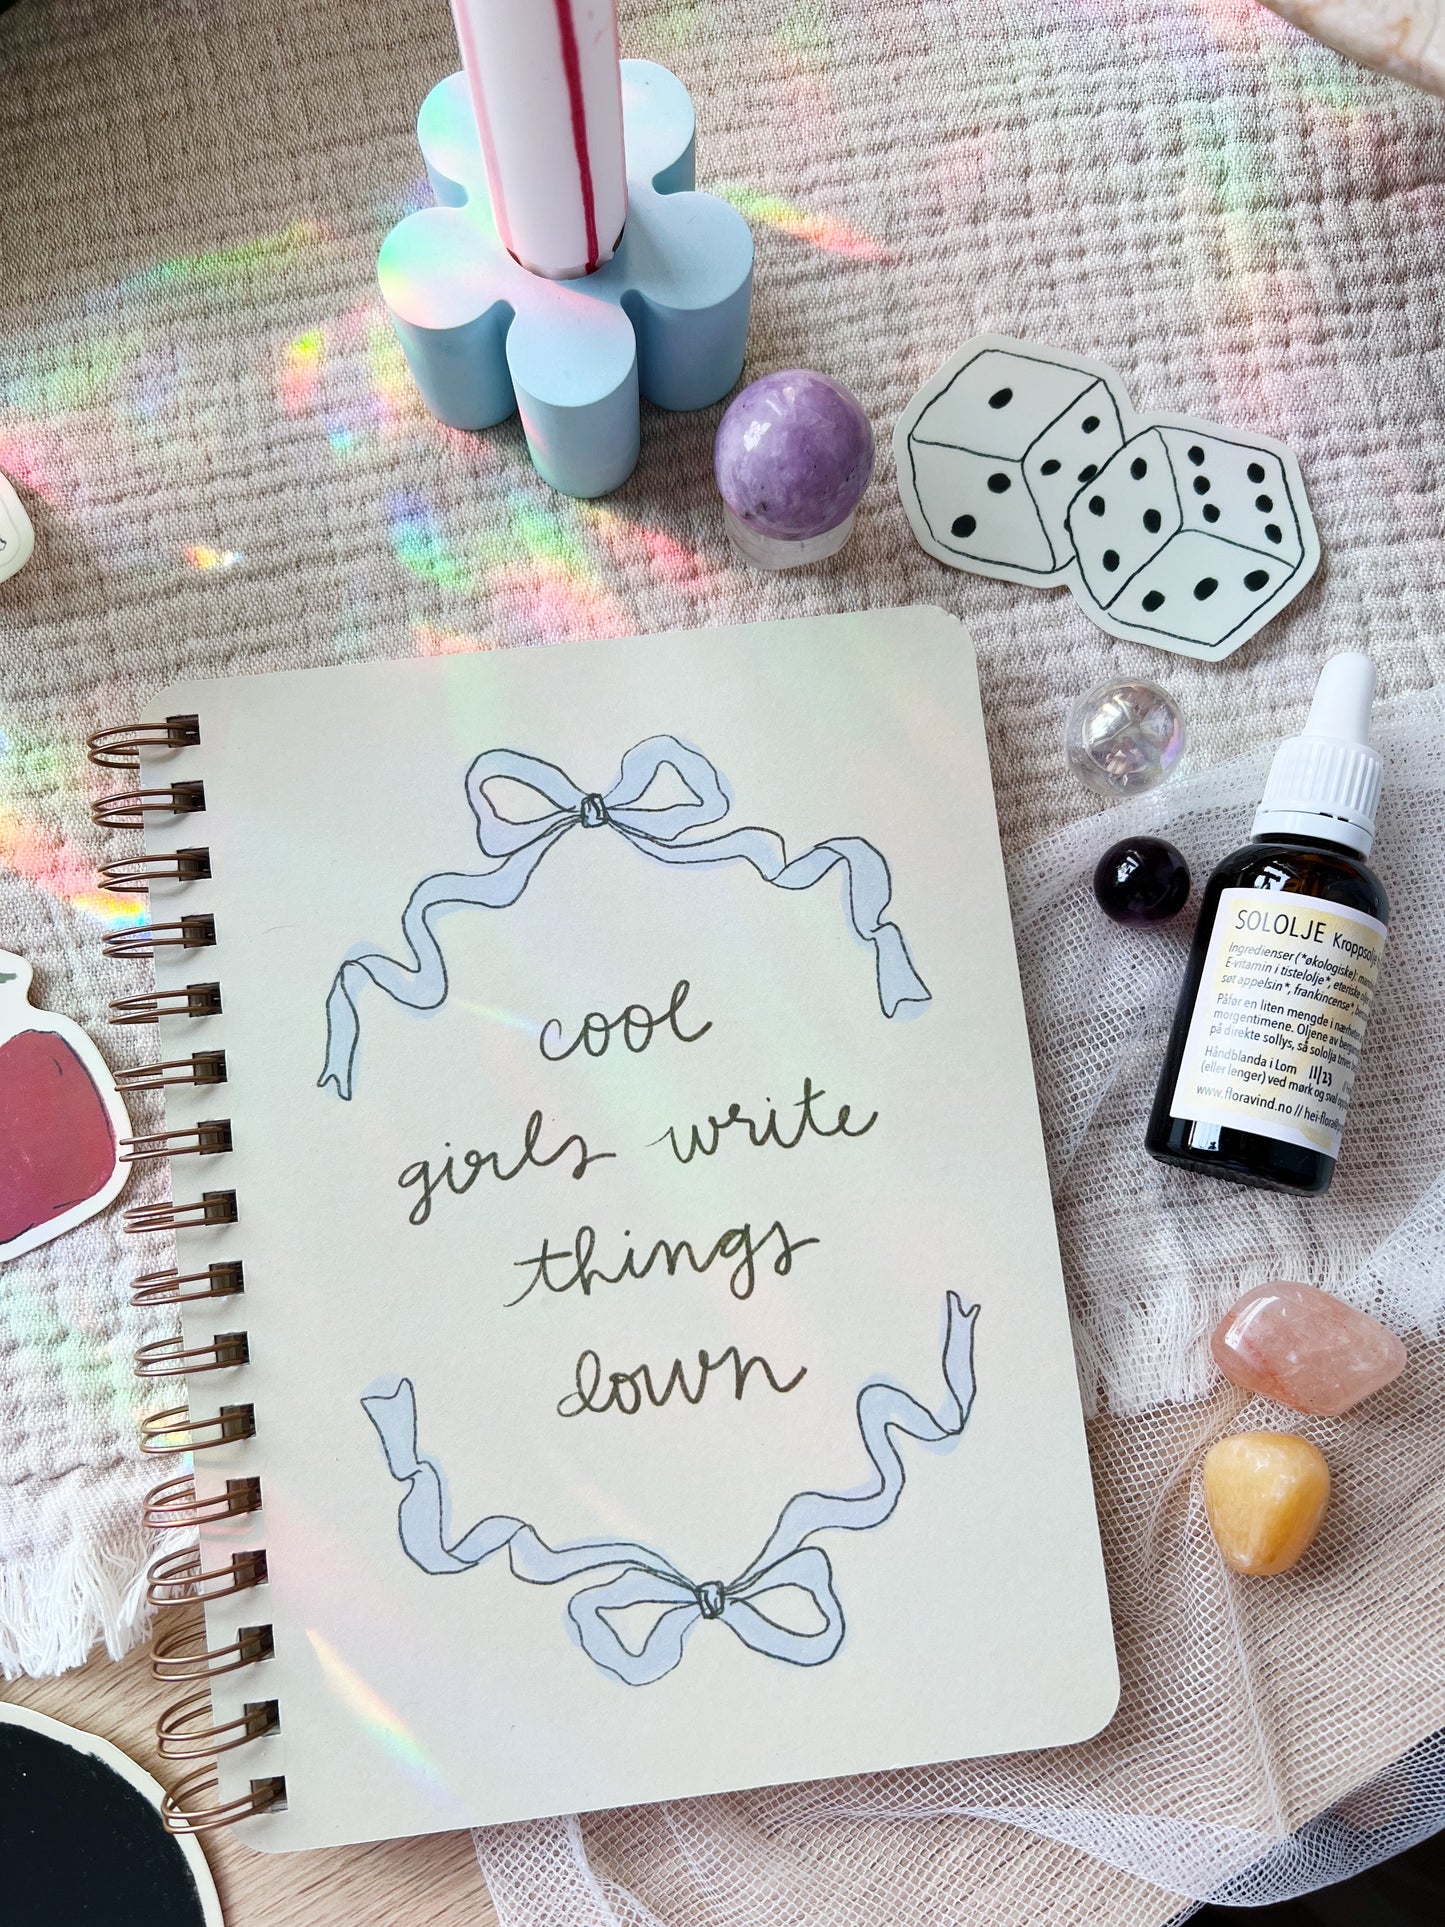 cool
girls write
things
down
SOLOLJE Kroppsolje
Ingredienser (*økologiske):
E-vitamin i tistelolje*, eteriske
søt appelsin*, frankincense*,
Påfør en liten mengde i
morgentimene. Oljene av
på direkte sollys, så sololja
Håndblanda i Lom 11/23
(eller lenger) ved mørk og sval
www.floravind.no // hei-flora@